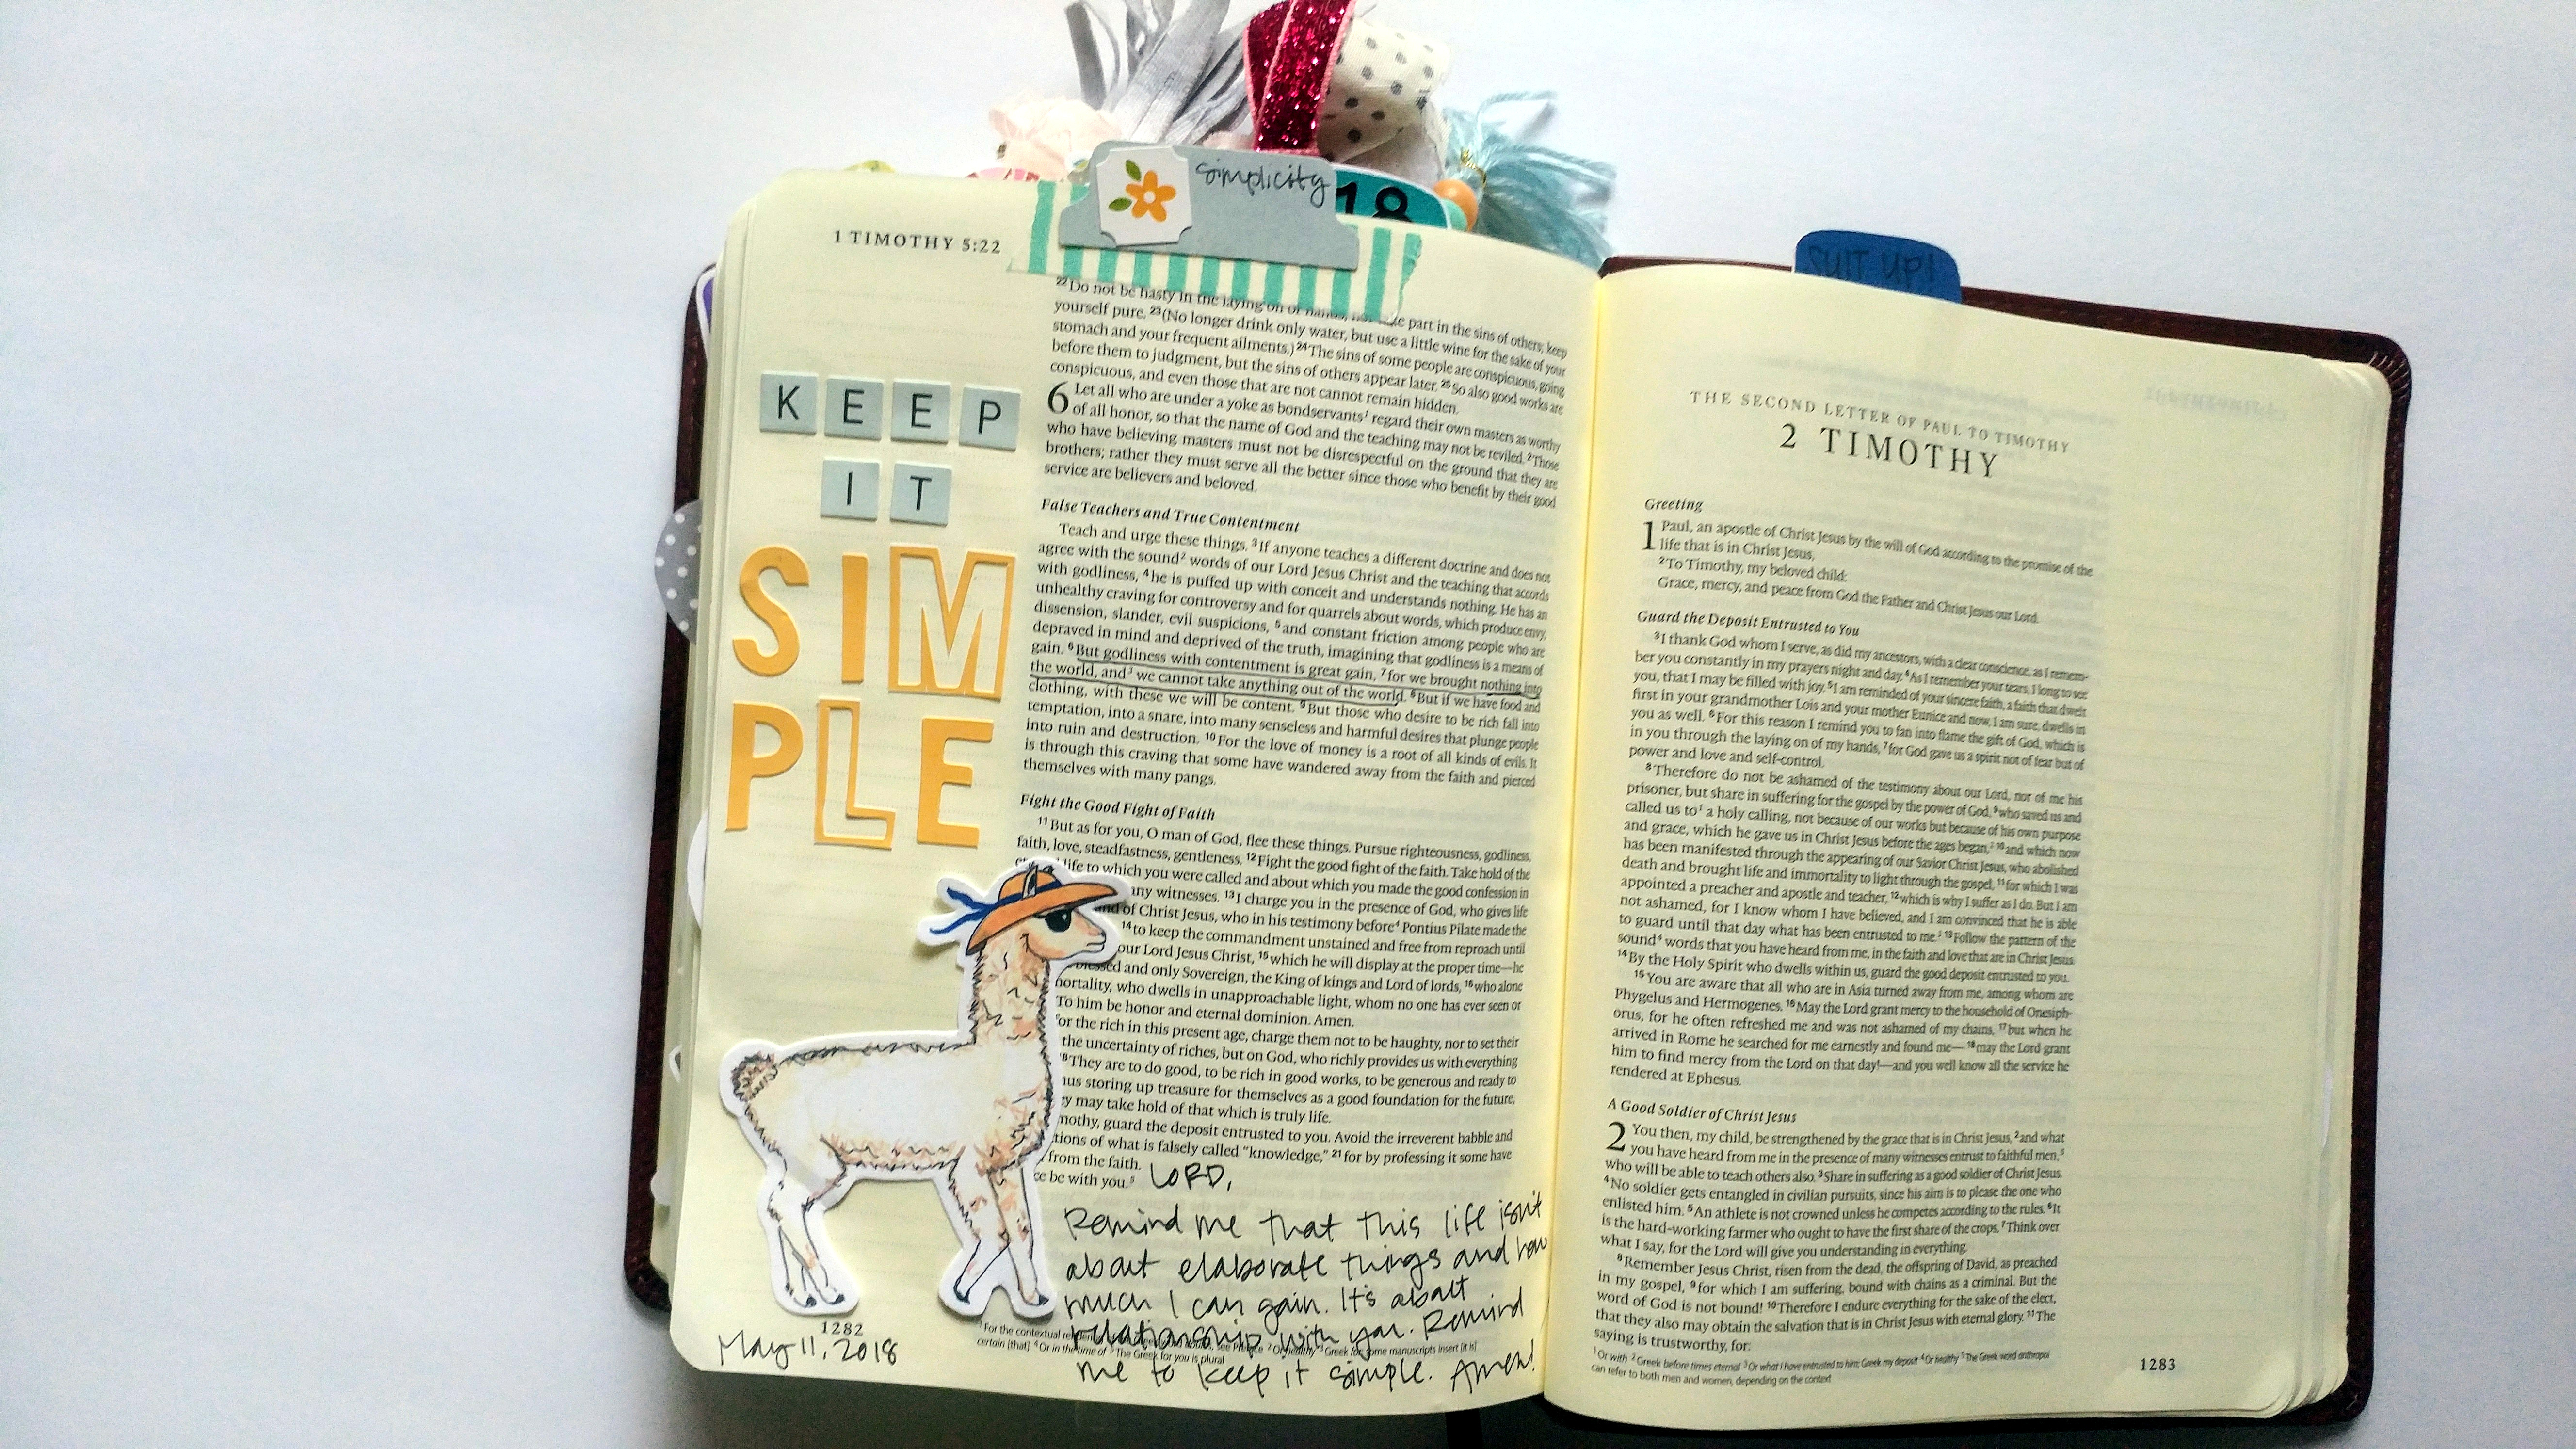 simplicity
18
SUIT UP!
1 TIMOTHY 5:22
KEEP
IT
SIM
PLE
22 Do not be hasty in the laying on of hands, take part in the sins of others; keep
yourself pure. 23 (No longer drink only water, but use a little wine for the sake of your
stomach and your frequent ailments.) 24 The sins of some people are conspicuous, going
before them to judgment, but the sins of others appear later. 25 So also good works are
conspicuous, and even those that are not cannot remain hidden.
6 Let all who are under a yoke as bondservants1 regard their own masters as worthy
of all honor, so that the name of God and the teaching may not be reviled. 2 Those
who have believing masters must not be disrespectful on the ground that they are
brothers; rather they must serve all the better since those who benefit by their good
service are believers and beloved.
False Teachers and True Contentment
Teach and urge these things. 3 If anyone teaches a different doctrine and does not
agree with the sound2 words of our Lord Jesus Christ and the teaching that accords
with godliness, 4 he is puffed up with conceit and understands nothing. He has an
unhealthy craving for controversy and for quarrels about words, which produce envy,
dissension, slander, evil suspicions, 5 and constant friction among people who are
depraved in mind and deprived of the truth, imagining that godliness is a means of
gain. 6 But godliness with contentment is great gain, 7 for we brought nothing into
the world, and3 we cannot take anything out of the world. 8 But if we have food and
clothing, with these we will be content. 9 But those who desire to be rich fall into
temptation, into a snare, into many senseless and harmful desires that plunge people
into ruin and destruction. 10 For the love of money is a root of all kinds of evils. It
is through this craving that some have wandered away from the faith and pierced
themselves with many pangs.
Fight the Good Fight of Faith
11 But as for you, O man of God, flee these things. Pursue righteousness, godliness,
faith, love, steadfastness, gentleness. 12 Fight the good fight of the faith. Take hold of the
life to which you were called and about which you made the good confession in
any witnesses. 13 I charge you in the presence of God, who gives life
and of Christ Jesus, who in his testimony before4 Pontius Pilate made the
14 to keep the commandment unstained and free from reproach until
our Lord Jesus Christ, 15 which he will display at the proper time—he
blessed and only Sovereign, the King of kings and Lord of lords, 16 who alone
mortality, who dwells in unapproachable light, whom no one has ever seen or
To him be honor and eternal dominion. Amen.
for the rich in this present age, charge them not to be haughty, nor to set their
the uncertainty of riches, but on God, who richly provides us with everything
18 They are to do good, to be rich in good works, to be generous and ready to
hus storing up treasure for themselves as a good foundation for the future,
ey may take hold of that which is truly life.
mothy, guard the deposit entrusted to you. Avoid the irreverent babble and
tions of what is falsely called “knowledge,” 21 for by professing it some have
from the faith.
ce be with you.5
LORD,
Remind me that this life isn't
about elaborate things and how
much I can gain. It's about
relationship with you. Remind
me to keep it simple. Amen!
1282
May 11, 2018
1 For the contextual see Preface 2 Or healthy 3 Greek for; some manuscripts insert [it is]
certain [that] 4 Or in the time of 5 The Greek for you is plural
THE SECOND LETTER OF PAUL TO TIMOTHY
2 TIMOTHY
Greeting
1 Paul, an apostle of Christ Jesus by the will of God according to the promise of the
life that is in Christ Jesus,
2 To Timothy, my beloved child:
Grace, mercy, and peace from God the Father and Christ Jesus our Lord.
Guard the Deposit Entrusted to You
3 I thank God whom I serve, as did my ancestors, with a clear conscience, as I remem-
ber you constantly in my prayers night and day. 4 As I remember your tears, I long to see
you, that I may be filled with joy. 5 I am reminded of your sincere faith, a faith that dwelt
first in your grandmother Lois and your mother Eunice and now, I am sure, dwells in
you as well. 6 For this reason I remind you to fan into flame the gift of God, which is
in you through the laying on of my hands, 7 for God gave us a spirit not of fear but of
power and love and self-control.
8 Therefore do not be ashamed of the testimony about our Lord, nor of me his
prisoner, but share in suffering for the gospel by the power of God, 9 who saved us and
called us to1 a holy calling, not because of our works but because of his own purpose
and grace, which he gave us in Christ Jesus before the ages began,2 10 and which now
has been manifested through the appearing of our Savior Christ Jesus, who abolished
death and brought life and immortality to light through the gospel, 11 for which I was
appointed a preacher and apostle and teacher, 12 which is why I suffer as I do. But I am
not ashamed, for I know whom I have believed, and I am convinced that he is able
to guard until that day what has been entrusted to me.3 13 Follow the pattern of the
sound4 words that you have heard from me, in the faith and love that are in Christ Jesus.
14 By the Holy Spirit who dwells within us, guard the good deposit entrusted to you.
15 You are aware that all who are in Asia turned away from me, among whom are
Phygelus and Hermogenes. 16 May the Lord grant mercy to the household of Onesiph-
orus, for he often refreshed me and was not ashamed of my chains, 17 but when he
arrived in Rome he searched for me earnestly and found me— 18 may the Lord grant
him to find mercy from the Lord on that day!—and you well know all the service he
rendered at Ephesus.
A Good Soldier of Christ Jesus
2 You then, my child, be strengthened by the grace that is in Christ Jesus, 2 and what
you have heard from me in the presence of many witnesses entrust to faithful men,5
who will be able to teach others also. 3 Share in suffering as a good soldier of Christ Jesus.
4 No soldier gets entangled in civilian pursuits, since his aim is to please the one who
enlisted him. 5 An athlete is not crowned unless he competes according to the rules. 6 It
is the hard-working farmer who ought to have the first share of the crops. 7 Think over
what I say, for the Lord will give you understanding in everything.
8 Remember Jesus Christ, risen from the dead, the offspring of David, as preached
in my gospel, 9 for which I am suffering, bound with chains as a criminal. But the
word of God is not bound! 10 Therefore I endure everything for the sake of the elect,
that they also may obtain the salvation that is in Christ Jesus with eternal glory. 11 The
saying is trustworthy, for:
1 Or with 2 Greek before times eternal 3 Or what I have entrusted to him; Greek my deposit 4 Or healthy 5 The Greek word anthropoi
can refer to both men and women, depending on the context
1283